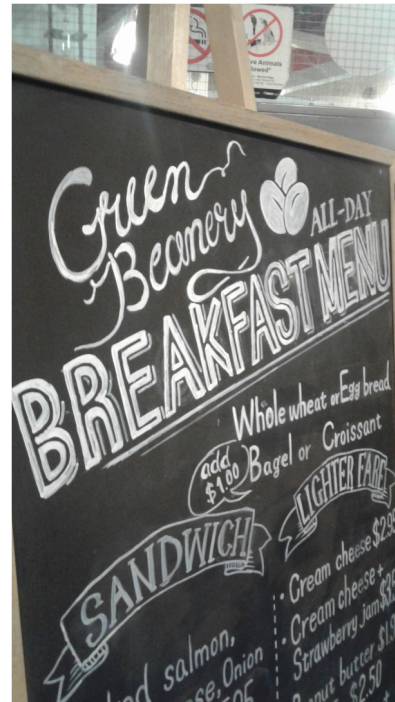 ve Animals
owed"
Green
Beanery
ALL-DAY
BREAKFAST MENU
Whole wheat or Egg bread
add
$1.00
Bagel or Croissant
SANDWICH
salmon,
Onion
LIGHTER FARE
• Cream cheese $2.95
• Cream cheese +
Strawberry jam
butter
$2.50